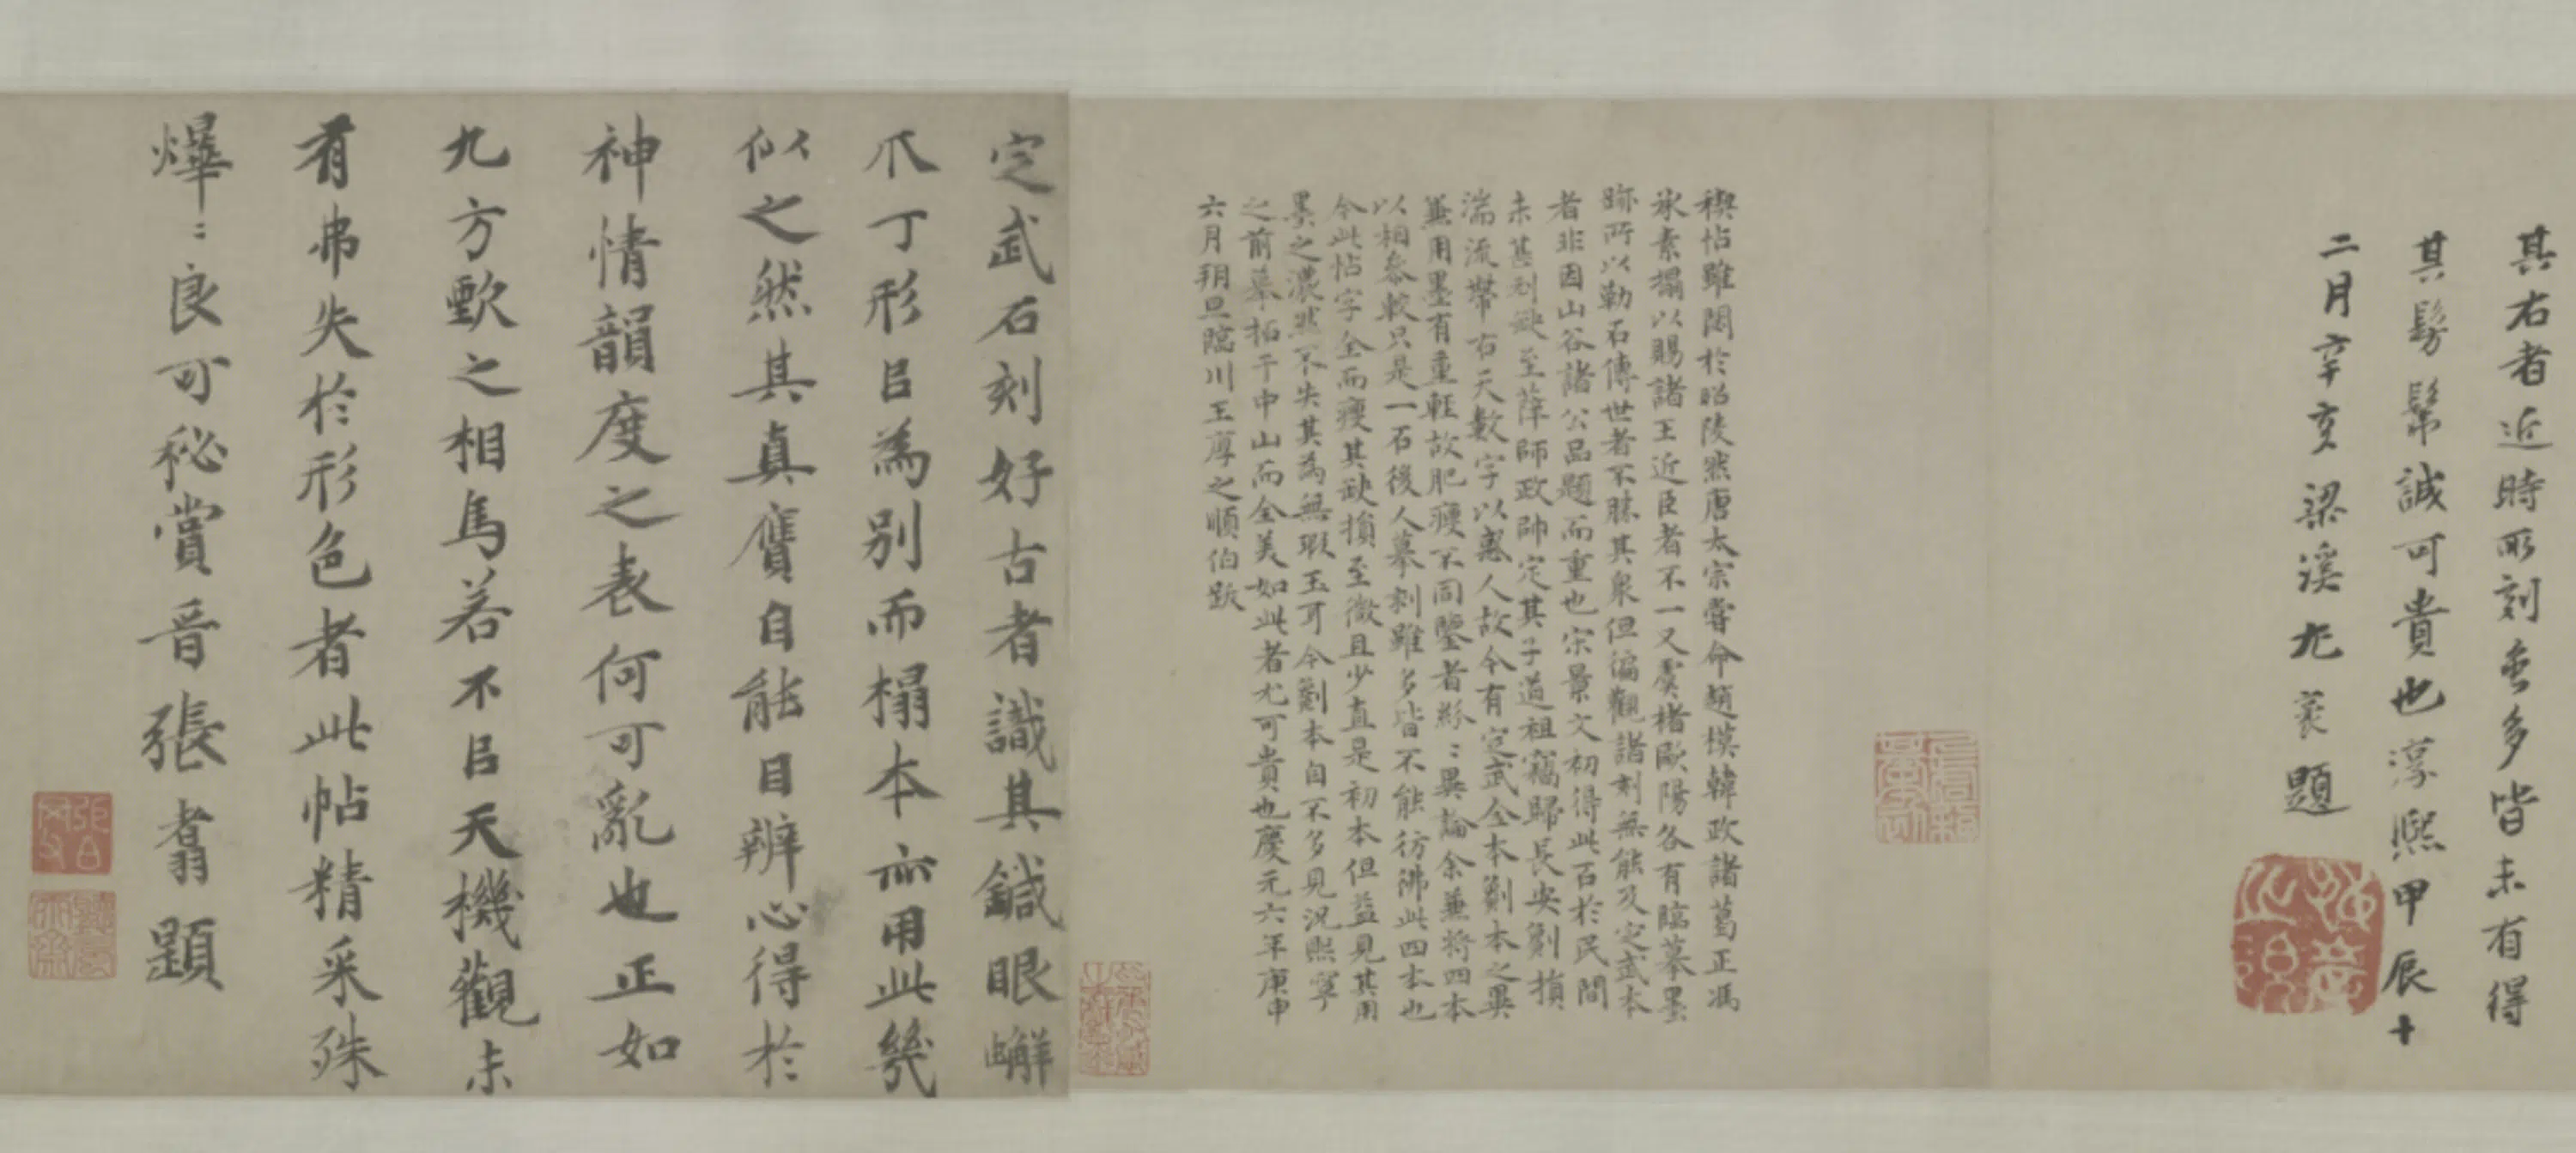 其右者近時所刻甚多皆未有得
其髣髴誠可貴也淳熙甲辰十
二月辛亥梁溪尤袤題
禊帖雖閟於昭陵然唐太宗嘗命趙模韓政諸葛正馮
承素搨以賜諸王近臣者不一又虞褚歐陽各有臨摹墨
跡所以勒石傳世者不勝其衆但徧觀諸刻無能及定武本
者非因山谷諸公品題而重也宋景文初得此石於民間
未甚刓缺至薛師政帥定其子道祖竊歸長安劖損
湍流帶右天數字以惑人故今有定武全本劖本之異
兼用墨有重輕故肥瘦不同鑒者紛〻異論余兼將四本
以相參較只是一石後人摹刻雖多皆不能彷彿此四本也
今此帖字全而瘦其缺損至微且少直是初本但益見其用
墨之濃然不失其為無瑕玉可今劖本自不多見況熙寧
之前摹拓于中山而全美如此者尤可貴也慶元六年庚申
六月朔旦臨川王厚之順伯跋
定武石刻好古者識其鍼眼蠏
爪丁形㠯為別而榻本亦用此幾
似之然其真贗自能目辨心得於
神情韻度之表何可亂也正如
九方歅之相馬若不㠯天機觀未
有弗失於形色者此帖精采殊
燁〻良可秘賞晉張翥題